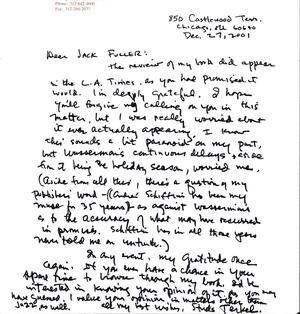 Phone: 312 642 4600
Fax: 312 266 2077
850 Castlewood Terr.
Chicago, Ill 60640
Dec. 27, 2001
Dear Jack Fuller:
The review of my book did appear
in the L.A. Times, as you had promised it
would. I'm deeply grateful. I hope
you'll forgive my calling on you in this
matter, but I was really worried about
it ever actually appearing. I know
this sounds a bit paranoid on my part,
but Wasserman's continuous delays, aside
from it being the holiday season, worried me.
(Aside from all this, there's a question of my
publisher's word — (Andre Schiffrin has been my
for 35 years) as against Wasserman's
as to the accuracy of what may have occurred
in promises. Schiffrin has in all those years
never told me an untruth.)
In any event, my gratitude once
again. If you ever have a chance in your
spare time to browse through my book, I'd be
interested in knowing your opinion of it. As you may
have guessed, I value your opinion in matters other than
jazz as well. All my best wishes, Studs Terkel